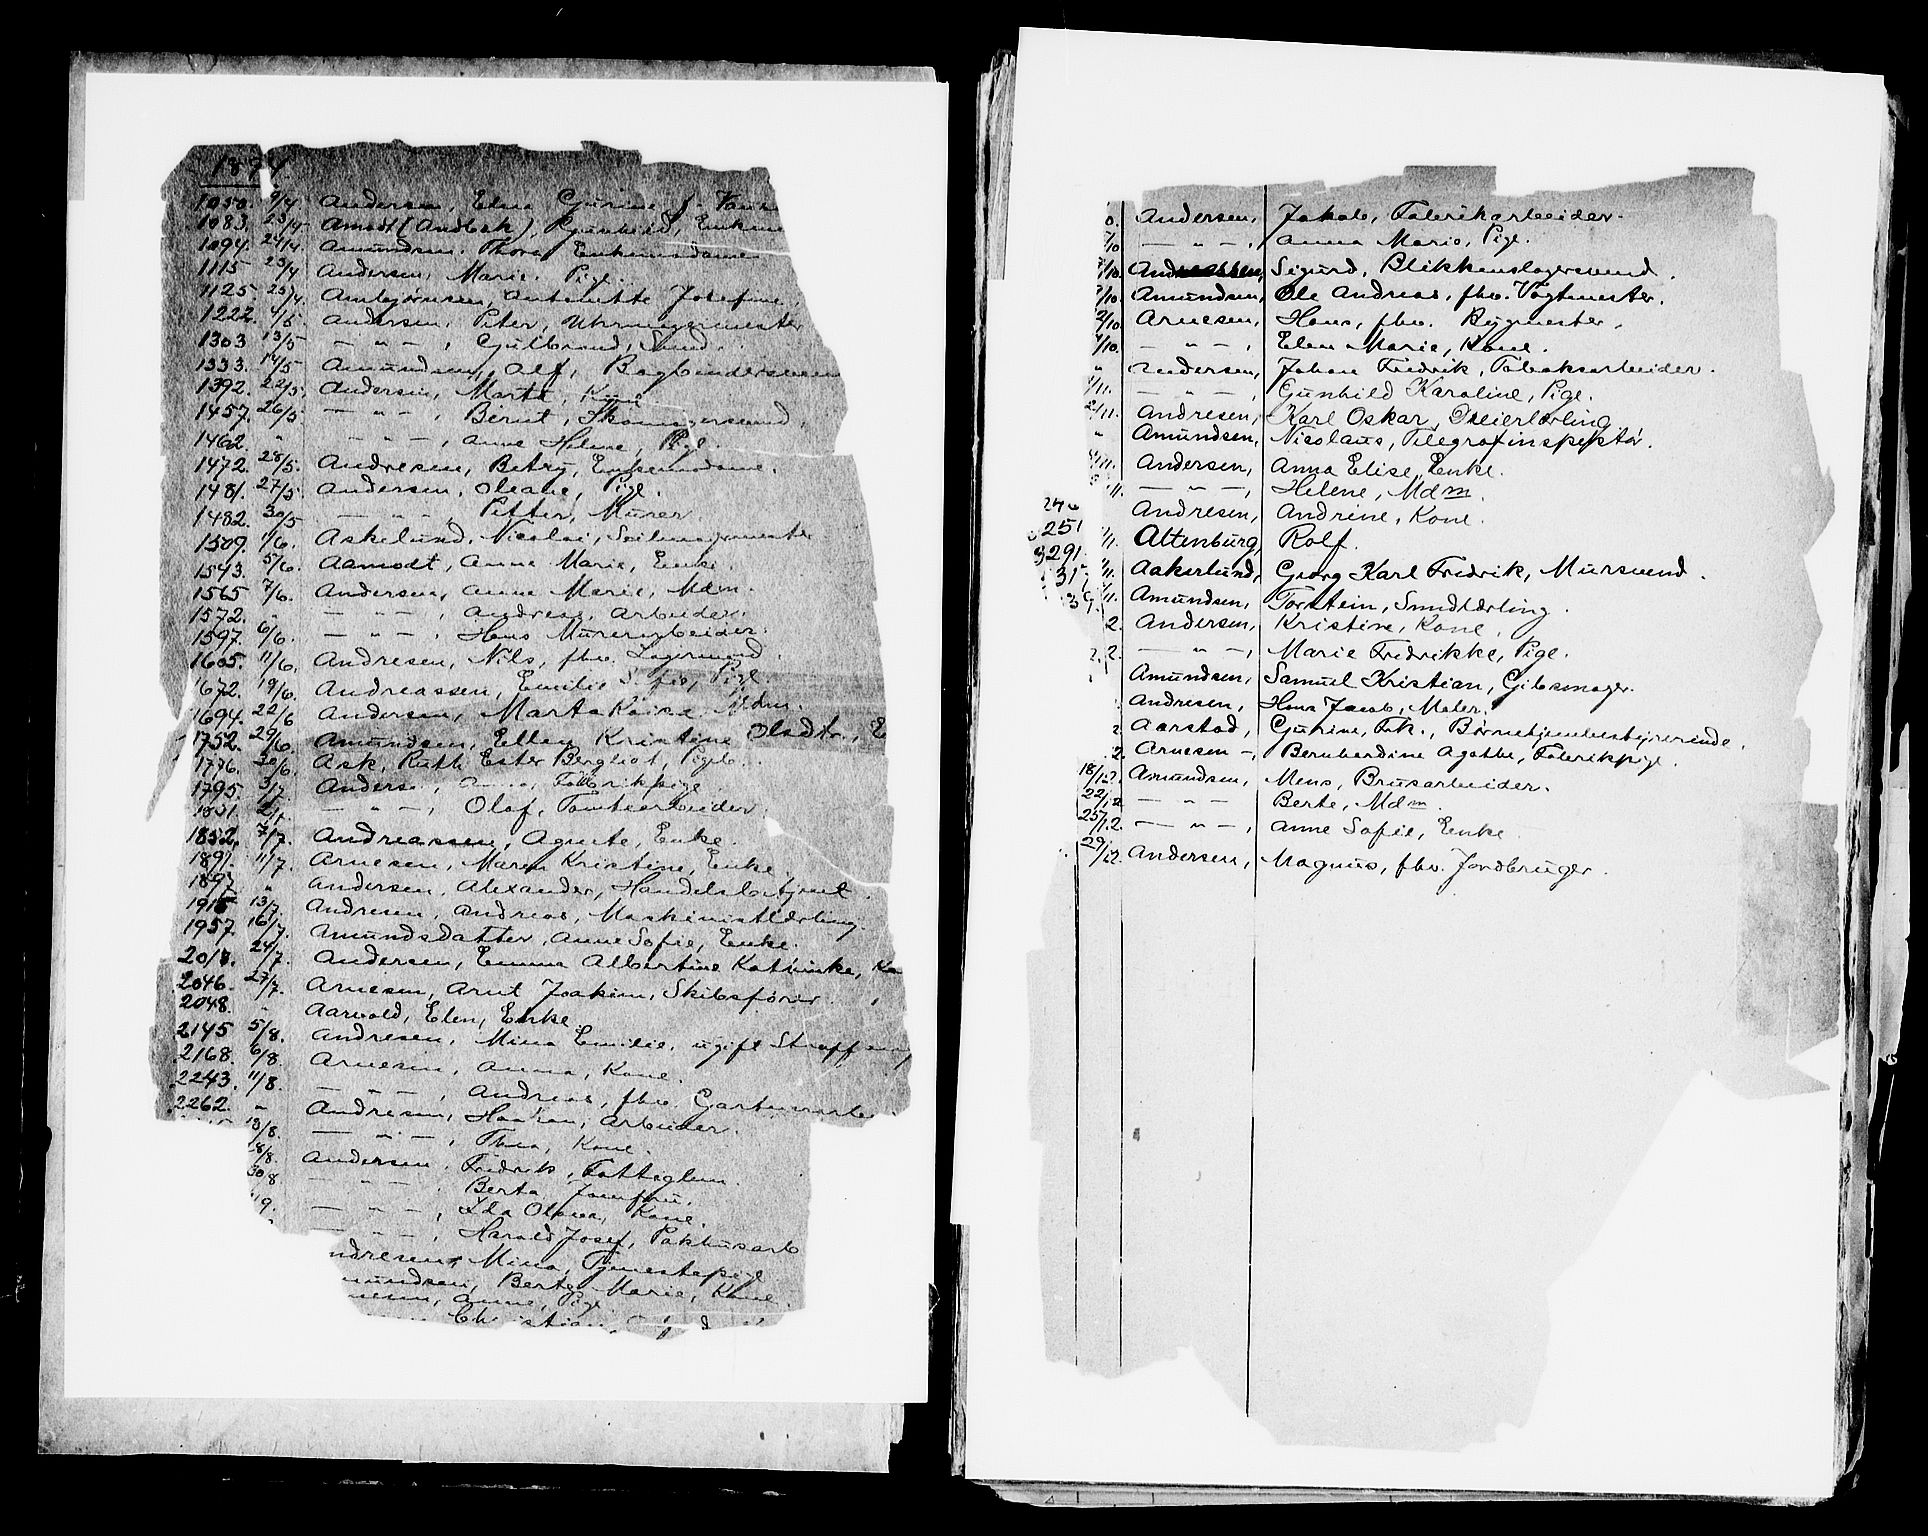 1894
1050. 9/4. Andersen, Elna Gurine, f.
1083. 23/4. Amodt (Andbek), Ragnhild, Enkem
1094. 24/4. Amundsen, Thora, Enkemadame
1115 23/4 Andersen, Marie, Pige.
1125. 25/4. Ambjørnsen, Antonette Josefine,
1222. 4/5. Andersen, Peter, Uhrmagermester
1303 13/5 — " —, Gulbrand, Svend.
1333. 14/5. Amundsen, Alf, Bogbindersvend
1392. 22/5. Andersen, Marte, Kone
1457. 26/5. — " —, Bernt, Skomagersvend,
1462 " — " —, Anne Helene, Pige.
1472. 28/5. Andresen, Betzy, Enkemadame.
1481. 27/5. Andersen, Oleane, Pige.
1482. 30/5. — " —, Petter, Murer.
1509. 1/6. Askelund, Nicolai, Seilmagermester
1543. 5/6. Aamodt, Anne Marie, Enke.
1565 7/6. Andersen, Anne Marie, Mdm.
1572. " — " —, Andreas, Arbeider.
1597. 6/6. — " —, Hans Murerarbeider.
1605. 11/6. Andresen, Nils, fhv. Lagermand.
1672. 19/6. Andreassen, Emilie Sofie, Pige.
1694. 22/6 Andersen, Marta Kaisa Mdm.
1752. 29/6. Amundsen, Ellen Kristine Olsdtr., E
1776. 30/6. Ask, Ruth Ester Bergliot, Pigeb.
1795. 3/7. Anderse , Anna, Fabrikpige
1801. 2/7 — " —, Olaf, Tomtearbeider.
1852. 7/7. Andreassen, Agnete, Enke.
1891. 11/7. Arnesen, Maren Kristine, Enke,
1897. " Andersen, Alexander, Handelsbetjent.
1915 13/7. Andresen, Andreas, Maskinistlærling.
1957. 16/7. Amundsdatter, Anne Sofie, Enke.
2017. 24/7. Andersen, Emma Albertine Kathinke, Ko
2046. 27/7. Arnesen, Arnt Joakim, Skibsfører.
2048. " Aarvold, Elen, Enke.
2145 5/8. Andresen, Mina Emilie, ugift
2168. 6/8. Arnesen, Anna, Kone.
2243. 11/8. — " —, Andreas, fhv. Gartnerarb
2262. " Andresen, Haakon, Arbeider.
18/8. — " —, Thea, Kone.
18/8. Andersen, Fredrik, Fattiglem.
30/8 — " —, Berta, Jomfru.
9. — " —, Ida Olava, Kone.
— " —, Harald Josef, Pakhusarb
ndresen, Mina, Tjenestepige
mundsen, Berte Marie, Kone.
nesen, Anne, Pige
Ch istian,
0. Andersen, Jakob, Fabrikarbeider.
/10 — " —, Anna Marie, Pige.
/10. Andreassen, Sigurd, Blikkenslagersvend.
/10. Amundsen, Ole Andreas, fhv. Vogtmester.
2/10. Arnesen, Hans, fhv. Bygmester,
/10. — " —, Elen Marie, Kone.
" Andersen, Johan Fredrik, Tobaksarbeider.
/11. — " —, Gunhild Karoline, Pige.
2/11. Andresen, Karl Oskar, Dreierlærling
" Amundsen, Nicolaus, Telegrafinspektør.
/11. Andersen, Anna Elise, Enke.
/11. — " —, Helene, Mdm.
246 Andresen, Andrine, Kone.
251 /11. Altenburg, Rolf.
3291. /11. Aakerlund, Georg Karl Fredrik, Mursvend.
31 /11. Amundsen, Torstein, Smedlærling.
2. Andersen, Kristine, Kone,
2. — " —, Marie Fredrikke, Pige.
Amundsen, Samuel Kristian, Gibsmager.
Andresen, Hans Jacob, Maler.
2 Aarstad, Gurine, Frk., Børnehjemsbestyrerinde.
2. Arnesen -, Bernhardine Agathe, Fabrikpige.
18/12. Amundsen, Mons, Brusarbeider.
22/12. — " —, Berte, Mdm.
25/12. — " —, Anne Sofie, Enke
29/12. Andersen, Magnus, fhv. Jordbruger.